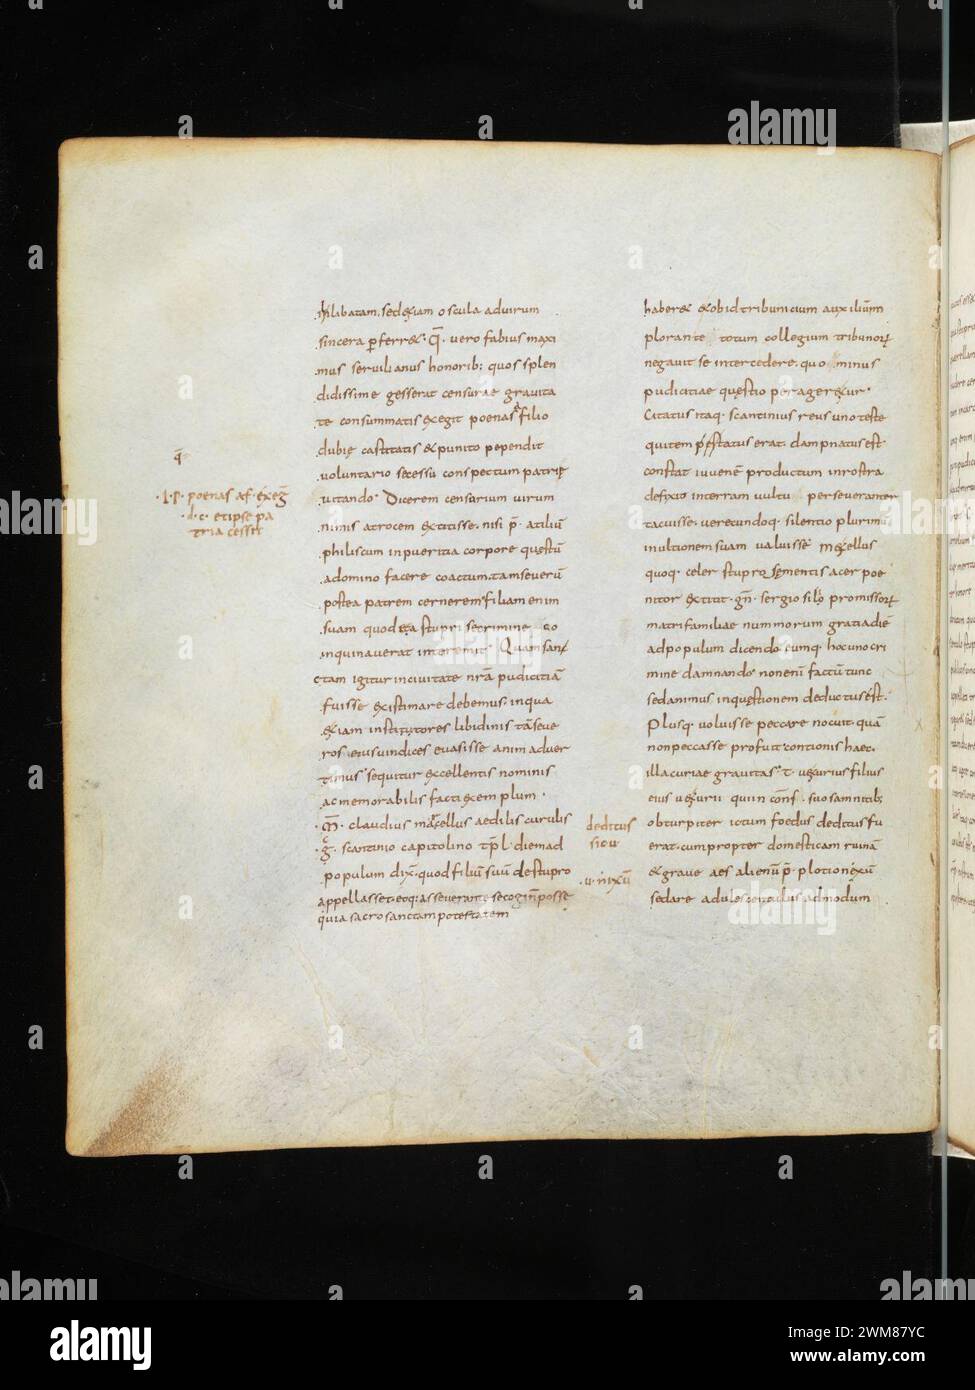 inlibatam, sed &iam oscula aduirum
sincera p̄ferr&· q̄· uero fabius maxi
mus seruilianus honorib; quos splen
didissime gesserat censurae grauita
te consummatis exegit poenas a filio
dubię castitatis & punito pependit
uoluntario secessu conspectum patrię
uitando· Dicerem censorium uirum
nimis atrocem extitisse· nisi p̄· atiliū
philiscum inpueritia corpore quęstū
adomino facere coactum· tam seuerū
postea patrem cernerem· Filiam enim
suam quod ea stupri se crimine co
inquinauerat interemit· Quam san
ctam igitur inciuitate nr̄a pudicitiā
fuisse existimare debemus· inqua
&iam institutores libidinis tā seue
ros· eius uindices euasisse animaduer
timus· sequitur excellentis nominis
ac memorabilis facti exemplum·
·M̄· claudius marcellus aedilis curulis
·g̅· scantinio capitolino tr̄· pl̄· diem ad
populum dix̄· quod filiū suū de stupro
appellass&· eoq; asseuerante se cogi n̄ posse
quia sacrosanctam potestatem
q̄=
·I·P· poenas a f· exeḡ
·d·c· et ipse pa
tria cessit
haber& & ob id tribunicium auxiliūm
plorante totum collegium tribunorꝝ
negauit se intercedere· quo minus
pudicitiae quęstio perager&ur·
Citatus itaq· scantinius reus uno teste
qui temptatus erat· dampnatus est
constat iuuenē productum in rostra
defixo in terram uultu perseueranter
tacuisse· uerecundoq· silentio plurimū
in ultionem suam ualuisse m&ellus
quoq· celer stuprosę mentis acer poe
nitor extitit· gn̄· sergio silo promissorꝝ
matri familiae nummorum gratia diē
ad populum dicendo eumq· hoc uno cri
mine damnando· non enī factū tunc
sed animus in quęstionem deductus est·
Plusq· uoluisse peccare nocuit· quā
non peccasse profuit· contionis haec·
illa curiae grauitas· t· u&urius filius
eius u&urii qui in cons̄· suo samnitib;
ob turpiter ictum foedus deditus fu
erat· cum propter domesticam ruinā
& graue aes alienū p̄· plotio nexū
se dare adulescentulus admodum
deditus
sic u
·u· nixū